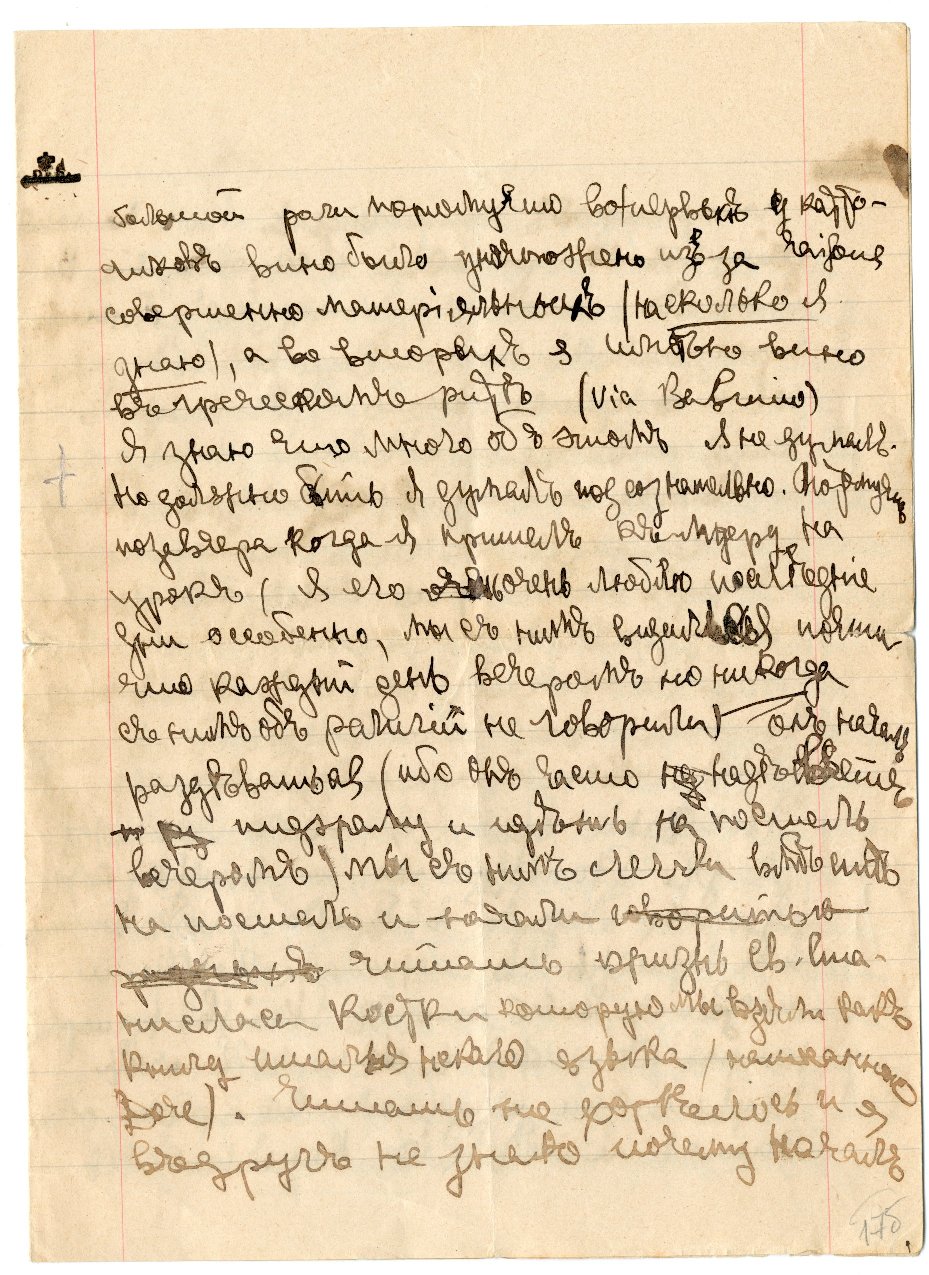 большой роли потомучто вопервыхъ у като-
ликовъ вино было уничтожено изъ за raisons
совершенно матеріяльныхъ (насколько я
знаю), а во вторыхъ я имѣю вино
въ греческомъ ритѣ (Via Babuino)
Я знаю что много объ этомъ я не думалъ.
но должно быть я думалъ подсознательно. Потомучто
позавчера когда я пришелъ къ на
урокъ (я его очень люблю послѣдніе
дни особенно, мы съ нимъ видимся почти
что каждый день вечеромъ но никогда
съ нимъ объ религіи не говорили) онъ началъ
раздѣваться (ибо онъ часто надѣваетъ
пиджаму и на постель
вечеромъ) мы съ нимъ легли вмѣстѣ
на постель и начали говорить о
разныхъ читать жизнь Св. Ста-
нислава Костки которую мы взяли какъ
книгу итальянскаго языка (написанную
). Читать не хотѣлось и я
вдругъ не знаю почему началъ
175